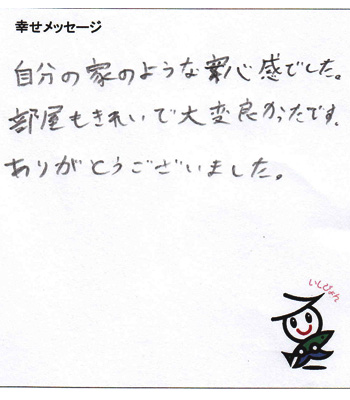 幸せメッセージ
自分の家のような安心感でした。
部屋もきれいで大変良かったです。
ありがとうございました。
いしぴょん